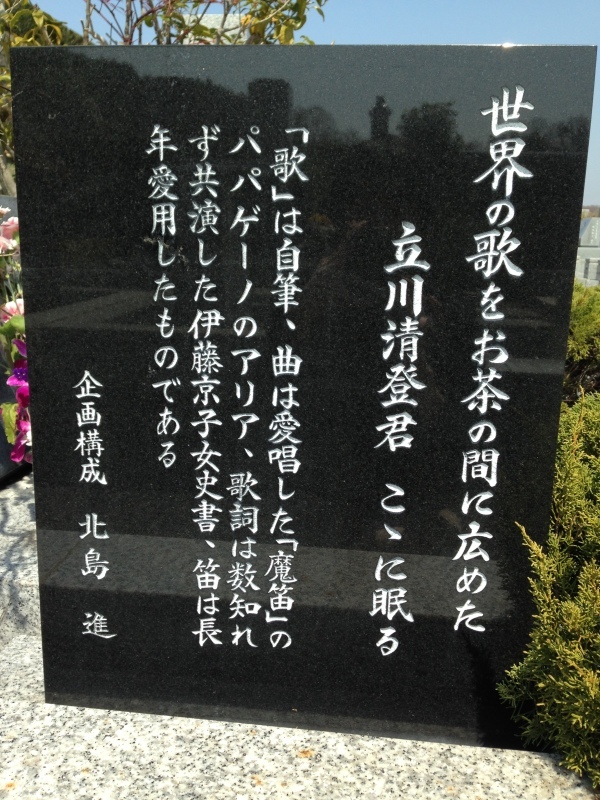 世界の歌をお茶の間に広めた
立川清登君 こゝに眠る
「歌」は自筆、曲は愛唱した「魔笛」の
パパゲーノのアリア、歌詞は数知れ
ず共演した伊藤京子女史書、笛は長
年愛用したものである
企画構成 北島 進